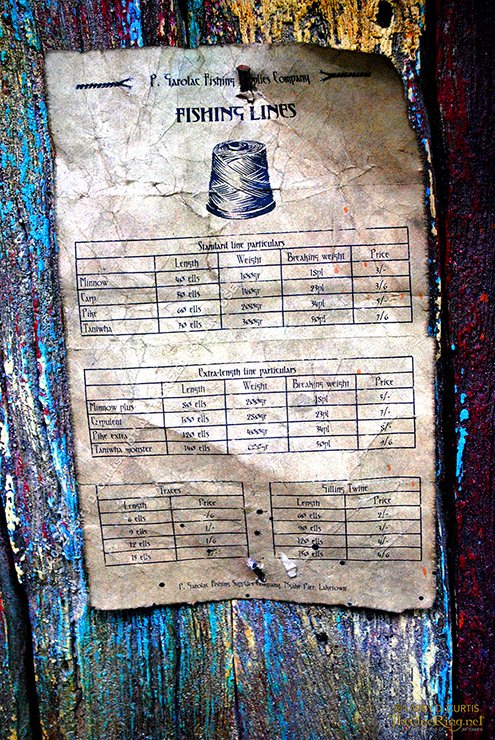 P. Sarolac Fishing Supplies Company
FISHING LINES
Standard line particulars
Length Weight Breaking weight Price
Minnow 40 ells 100gr 18pl 3/-
Carp 50 ells 23pl 3/6
Pike 60 ells 200gr 34pl 5/-
Taniwha 70 ells 300gr 50pl 7/6
Extra-length line particulars
Length Weight Breaking weight Price
Minnow plus 80 ells 200gr 18pl 5/-
Carpulent 100 ells 280gr 23pl 7/-
Pike extra 120 ells 400gr 34pl 8/-
Taniwha monster 140 ells 50pl
Traces
Length Price
6 ells
9 ells 1/-
12 ells 1/-
15 ells
Silling Twine
Length Price
60 ells 2/-
90 ells 3/-
120 ells 4/-
150 ells
P. Sarolac Fishing Supplies Company, Pier, Laketown
CURTIS
TheOneRing.net